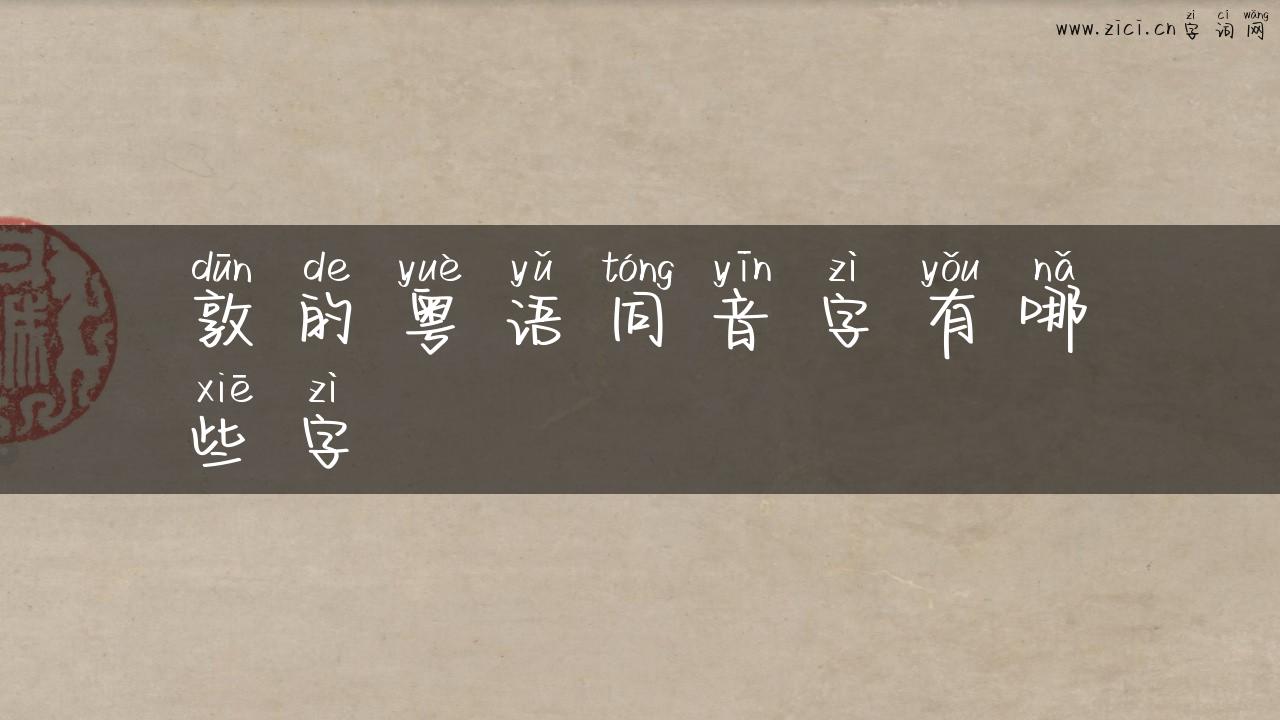 zì cí wǎng
www.zici.cn字词网
dūn de yuè yǔ tóng yīn zì yǒu nǎ
敦的粤语同音字有哪
xiē zì
些字